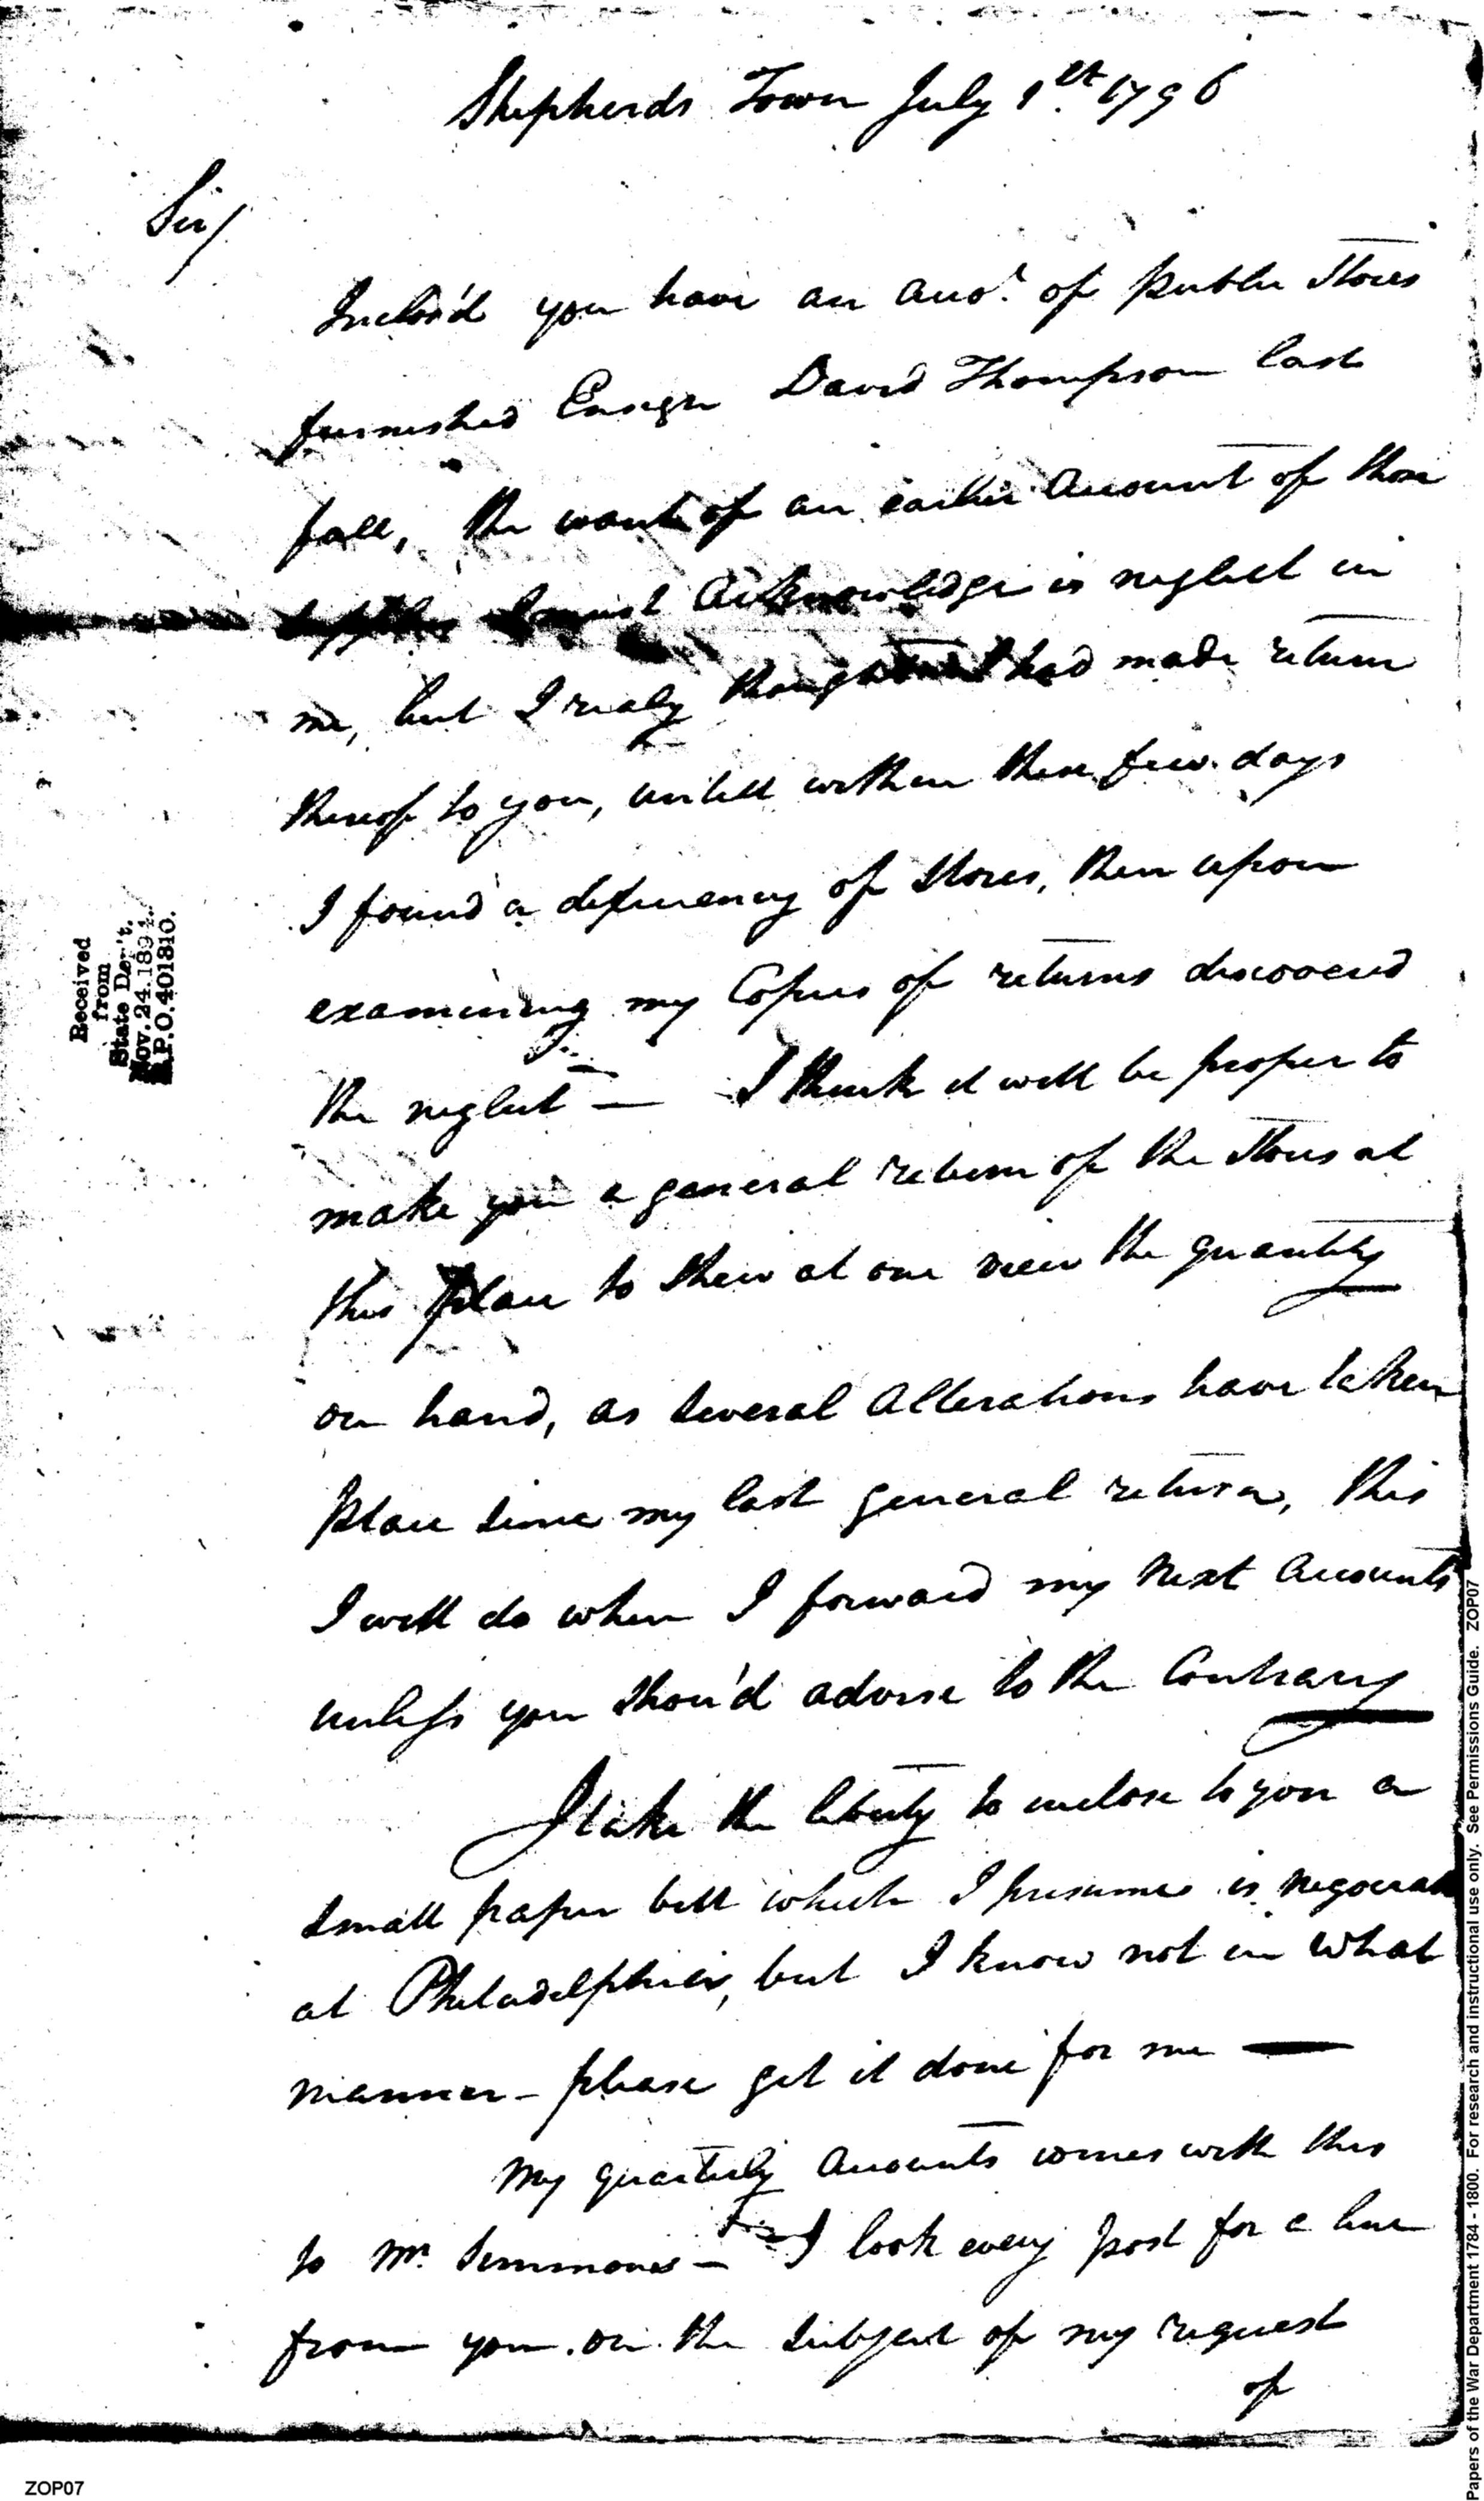 Shepherds Town July 1st 1796
Sir/
Inclos'd you have an acco.t of Public Stores
furnished Ensign David Thompson last
fall, the want of an earlier Account of those
supplies I must Acknowledge is neglect in
me, but I realy thought I had made return
thereof to you, untill within these few days
I found a deficiency of Stores, then upon
examining my Copies of returns discovered
the neglect — I think it will be proper to
make you a general return of the Stores at
this place to shew at one view the quantity
on hand, as several Alterations have taken
place since my last general return, this
I will do when I forward my next Accounts
unless you shou'd advise to the Contrary
I take the liberty to inclose to you a
small paper bill which I presume is
at Philadelphia, but I know not in what
manner – please get it done for me —
My quarterly Accounts comes with this
to Mr. Simmons – I look every post for a line
from you on the subject of my request
of
Received
from
State Dep't.
Nov. 24. 1894.
R.P.O. 401810.
Papers of the War Department 1784 - 1800. For research and instructional use only. See Permissions Guide. ZOP07
ZOP07